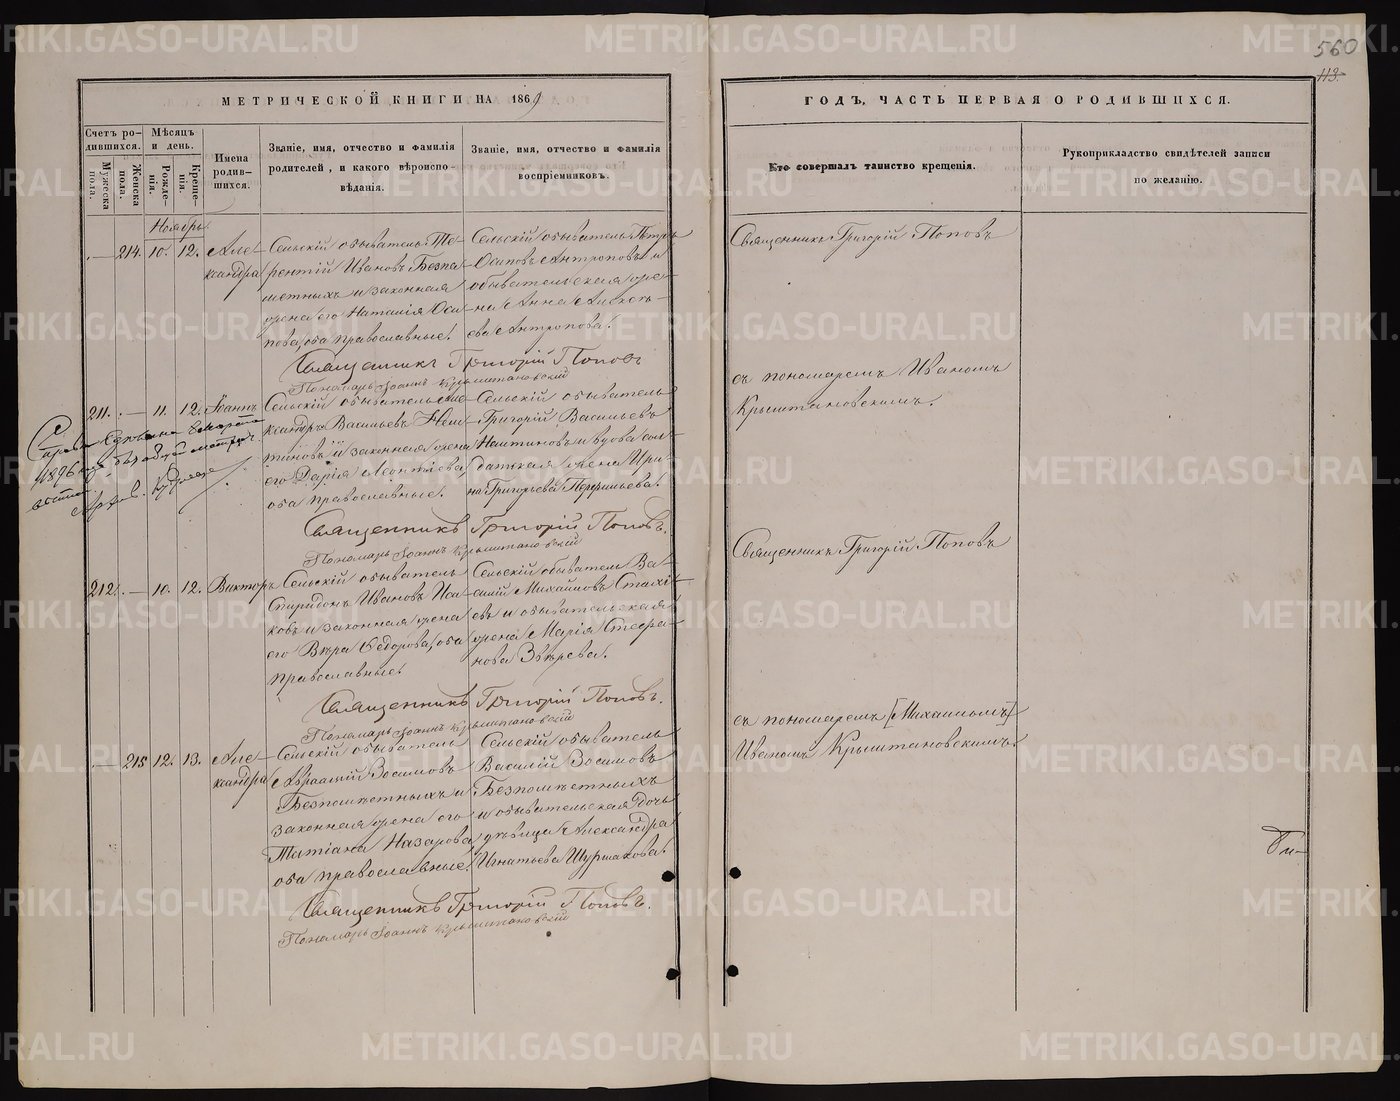 560
113.
МЕТРИЧЕСКОЙ КНИГИ НА 1869
ГОДЪ, ЧАСТЬ ПЕРВАЯ О РОДИВШИХСЯ.
Счетъ родившихся.
Мужеска пола.
Женска пола.
Мѣсяцъ и день.
Рожденія.
Крещенія.
Имена родившихся.
Званіе, имя, отчество и фамилія
родителей, и какого вѣроиспо-
вѣданія.
Званіе, имя, отчество и фамилія
воспріемниковъ.
Кто совершалъ таинство крещенія.
Рукоприкладство свидѣтелей записи
по желанію.
Ноябрь
214. 10. 12. Але-
ксандра
Сельскій обыватель Те-
рентій Ивановъ Безпа-
метныхъ и законная
жена его Наталія Оси-
пова, оба православные.
Сельскій обыватель Петръ
Осиповъ Антроповъ и
обывательская же-
на Анна
ева Антропова.
Священникъ Григорій Поповъ
Пономарь Іоаннъ Крыштановскій
Священникъ Григорій Поповъ
съ пономаремъ Иваномъ
Крыштановскимъ.
211. 11. 12. Іоаннъ
Сельскій обыватель Але-
ксандръ Васильевъ
и законная жена
его Дарія Леонтіева
оба православные.
Сельскій обыватель
Григорій Васильевъ
и вдова сол-
датская жена Ири-
на Григорьева
1896
Священникъ Григорій Поповъ.
Пономарь Іоаннъ Крыштановскій
212. 10. 12. Викторъ
Сельскій обыватель
Спиридонъ Ивановъ Иса-
ковъ и законная жена
его Вѣра Ѳедорова, оба
православные.
Сельскій обыватель Ва-
силій Михайловъ Стахі-
евъ и обывательская
жена Марія Стефа-
нова Звѣрева.
Священникъ Григорій Поповъ
съ пономаремъ [Михаиломъ]
Иваномъ Крыштановскимъ.
Священникъ Григорій Поповъ.
Пономарь Іоаннъ Крыштановскій
215 12. 13. Але-
ксандра
Сельскій обыватель
Авраамій Зосимовъ
Безпаметныхъ и
законная жена его
Татіана Назарова,
оба православные.
Сельскій обыватель
Василій Зосимовъ
Безпаметныхъ
и обывательская дочь
дѣвица Александра
Игнатьева Шурмакова.
Священникъ Григорій Поповъ.
Пономарь Іоаннъ Крыштановскій
METRIKI.GASO-URAL.RU